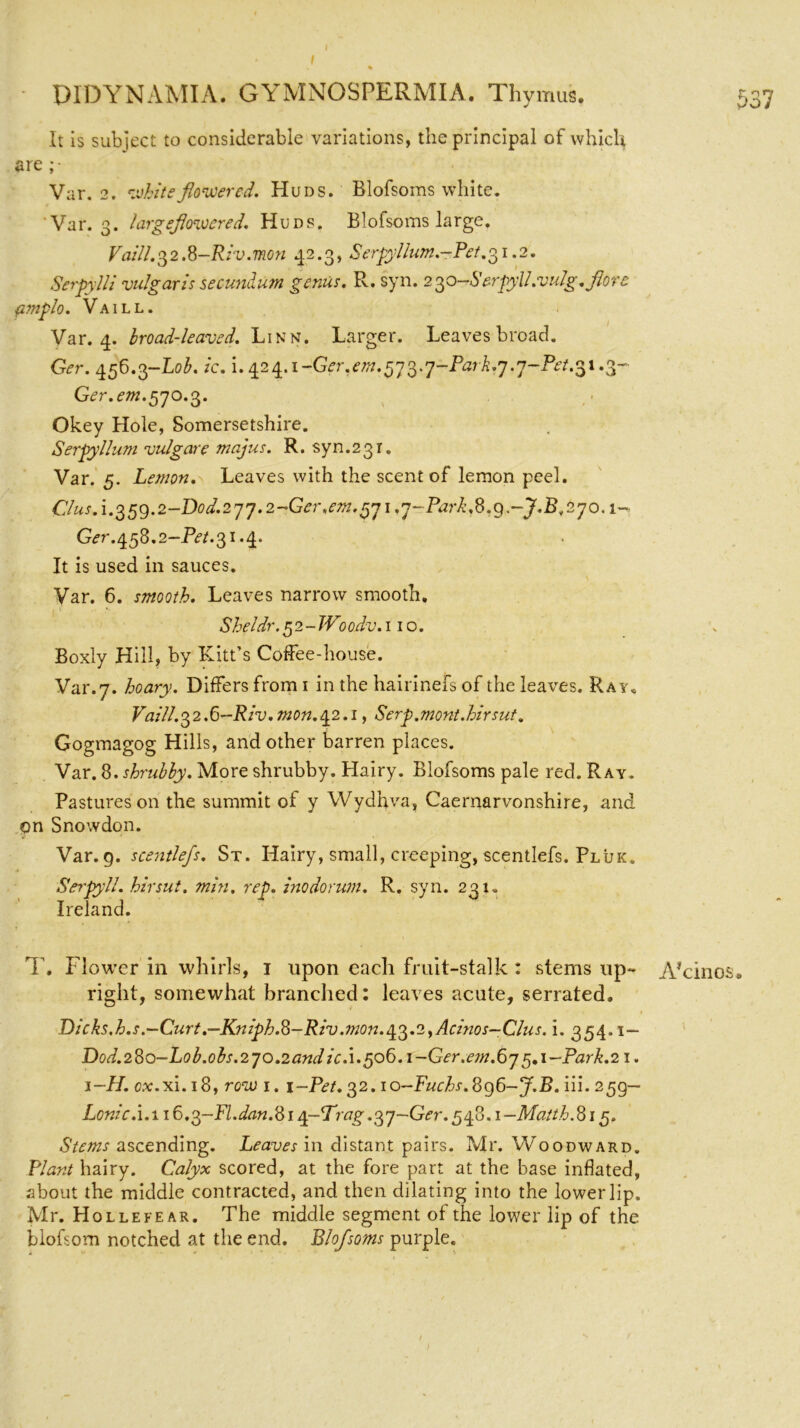 DIDYNAMIA. GYMNOSPERMIA. Thymus. 537
It is subject to considerable variations, the principal of which
are ;-
Var. 2. white flowered. Huds. Blofsoms white.
Var. 3. largeflowered. Huds. Blofsoms large.
Vaill.32.8-Riv.mon 42.3, Serpyllum.-Pet.31.2.
Serpylli vulgaris secundum genus. R. syn. 230-Serpyll.vulg.flore
amplo. Vaill.
Var. 4. broad-leaved. Linn. Larger. Leaves broad.
Ger. 456.3-Lob. ic. i. 424.1-Ger.em.573.7-Park.7.7-Pet.31.3-
Ger.em.570.3.
Okey Hole, Somersetshire.
Serpyllum vulgare majus. R. syn.231.
Var. 5. Lemon. Leaves with the scent of lemon peel.
Clus.i.359.2-Dod.277.2-Ger.em.571.7-Park.8.9.-J.B.270.1-
Ger.458.2-Pet.31.4.
It is used in sauces.
Var. 6. smooth. Leaves narrow smooth.
Sheldr.52-Woodv.110.
Boxly Hill, by Kitt's Coffee-house.
Var.7. hoary. Differs from 1 in the hairinefs of the leaves. Ray.
Vaill.32.6-Riv.mon.42.1, Serp.mont.hirsut.
Gogmagog Hills, and other barren places.
Var. 8. shrubby. More shrubby. Hairy. Blofsoms pale red. Ray.
Pastures on the summit of y Wydhva, Caernarvonshire, and
on Snowdon.
Var. 9. scentlefs. St. Hairy, small, creeping, scentlefs. Pluk.
Serpyll. hirsut. min. rep. inodorum. R. syn. 231.
Ireland.
T. Flower in whirls, 1 upon each fruit-stalk : stems up- A'cinos.
right, somewhat branched: leaves acute, serrated.
Dicks.h.s.-Curt.-Kniph.8-Riv.mon.43.2, Acinos-Clus. i. 354.1-
Dod.280-Lob.obs.270.2andic.i.506.1-Ger.em.675.1-Park.21.
1-H. ox.xi.18, row 1. 1-Pet. 32.10-Fuchs.896-J.B. iii. 259-
Lonic.i.116.3-Fl.dan.814-Trag.37-Ger.548.1-Matth.815.
Stems ascending. Leaves in distant pairs. Mr. Woodward.
Plant hairy. Calyx scored, at the fore part at the base inflated,
about the middle contracted, and then dilating into the lower lip.
Mr. Hollefear. The middle segment of the lower lip of the
blofsom notched at the end. Blofsoms purple.